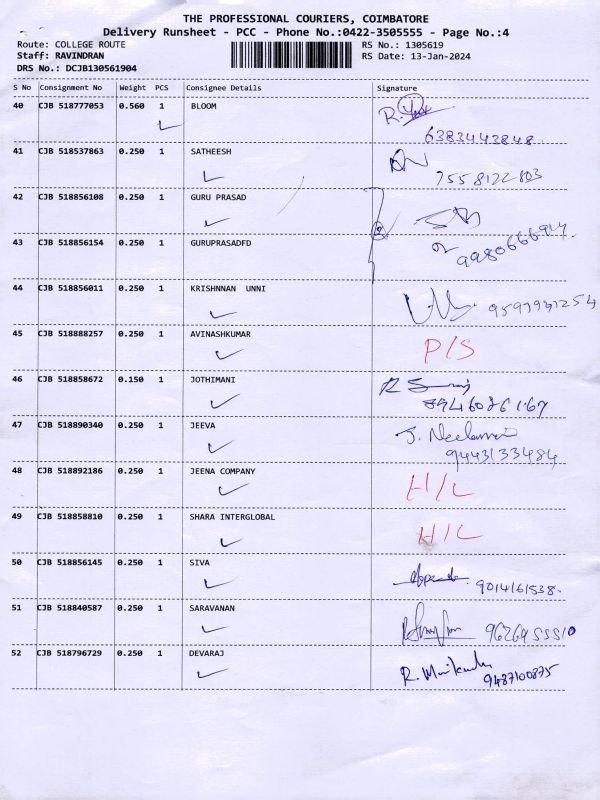 THE PROFESSIONAL COURIERS, COIMBATORE
Delivery Runsheet - PCC - Phone No.:0422-3505555 - Page No.:4
Route: COLLEGE ROUTE RS No.: 1305619
Staff: RAVINDRAN RS Date: 13-Jan-2024
DRS No.: DCJB130561904
S No Consignment No Weight PCS Consignee Details Signature
40 CJB 518777053 0.560 1 BLOOM R.
6383443848
41 CJB 518537863 0.250 1 SATHEESH
7558122803
42 CJB 518856108 0.250 1 GURU PRASAD
43 CJB 518856154 0.250 1 GURUPRASADFD
44 CJB 518856011 0.250 1 KRISHNNAN UNNI
45 CJB 518888257 0.250 1 AVINASHKUMAR P/S
46 CJB 518858672 0.150 1 JOTHIMANI R
47 CJB 518890340 0.250 1 JEEVA J.
9443133484
48 CJB 518892186 0.250 1 JEENA COMPANY H/L
49 CJB 518858810 0.250 1 SHARA INTERGLOBAL H/L
50 CJB 518856145 0.250 1 SIVA 9014161538.
51 CJB 518840587 0.250 1 SARAVANAN
52 CJB 518796729 0.250 1 DEVARAJ R.
9487100875